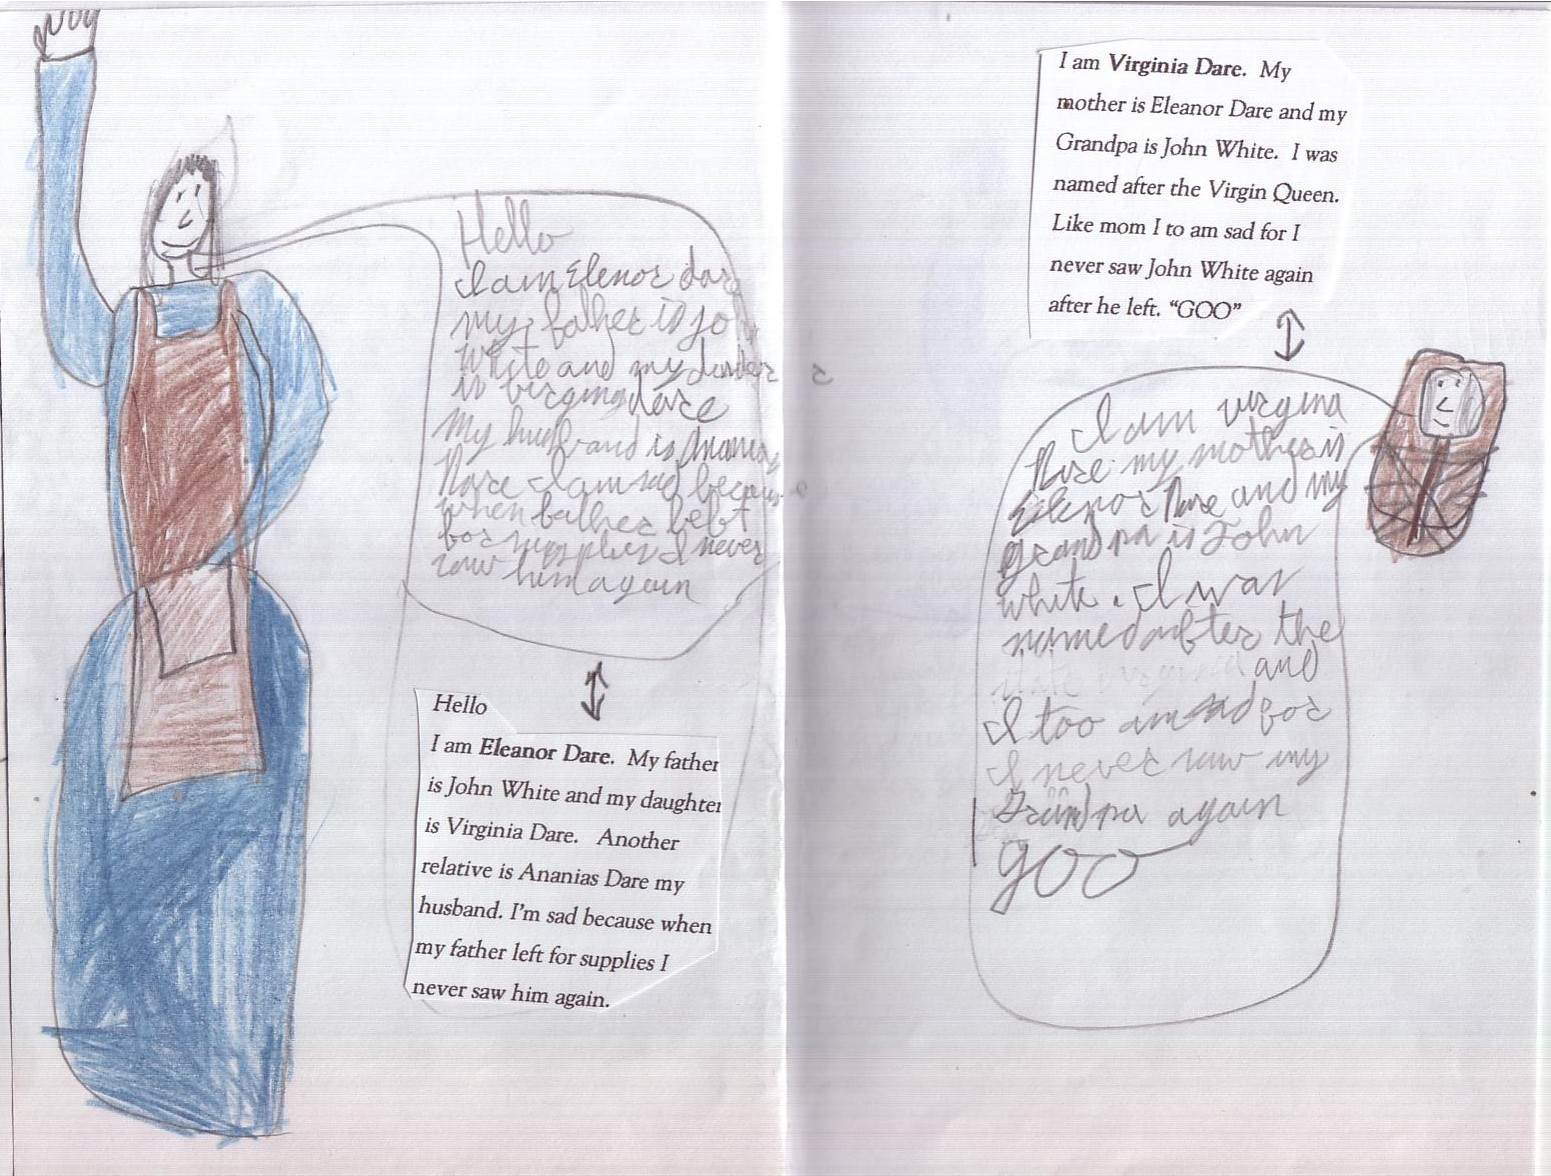 Hello
I am Elenor dare
my father is jo
white and my
is virgina dare
My husband is Ananias
Dare I am sad because
when father left
for supplies I never
saw him again
Hello
I am Eleanor Dare. My father
is John White and my daughter
is Virginia Dare. Another
relative is Ananias Dare my
husband. I'm sad because when
my father left for supplies I
never saw him again.
I am Virginia Dare. My
mother is Eleanor Dare and my
Grandpa is John White. I was
named after the Virgin Queen.
Like mom I to am sad for I
never saw John White again
after he left. “GOO”
I am virgina
Dare my mother is
Elenor Dare and my
grandpa is John
white. I was
named after the
and
I too am sad for
I never saw my
Grandpa again
goo